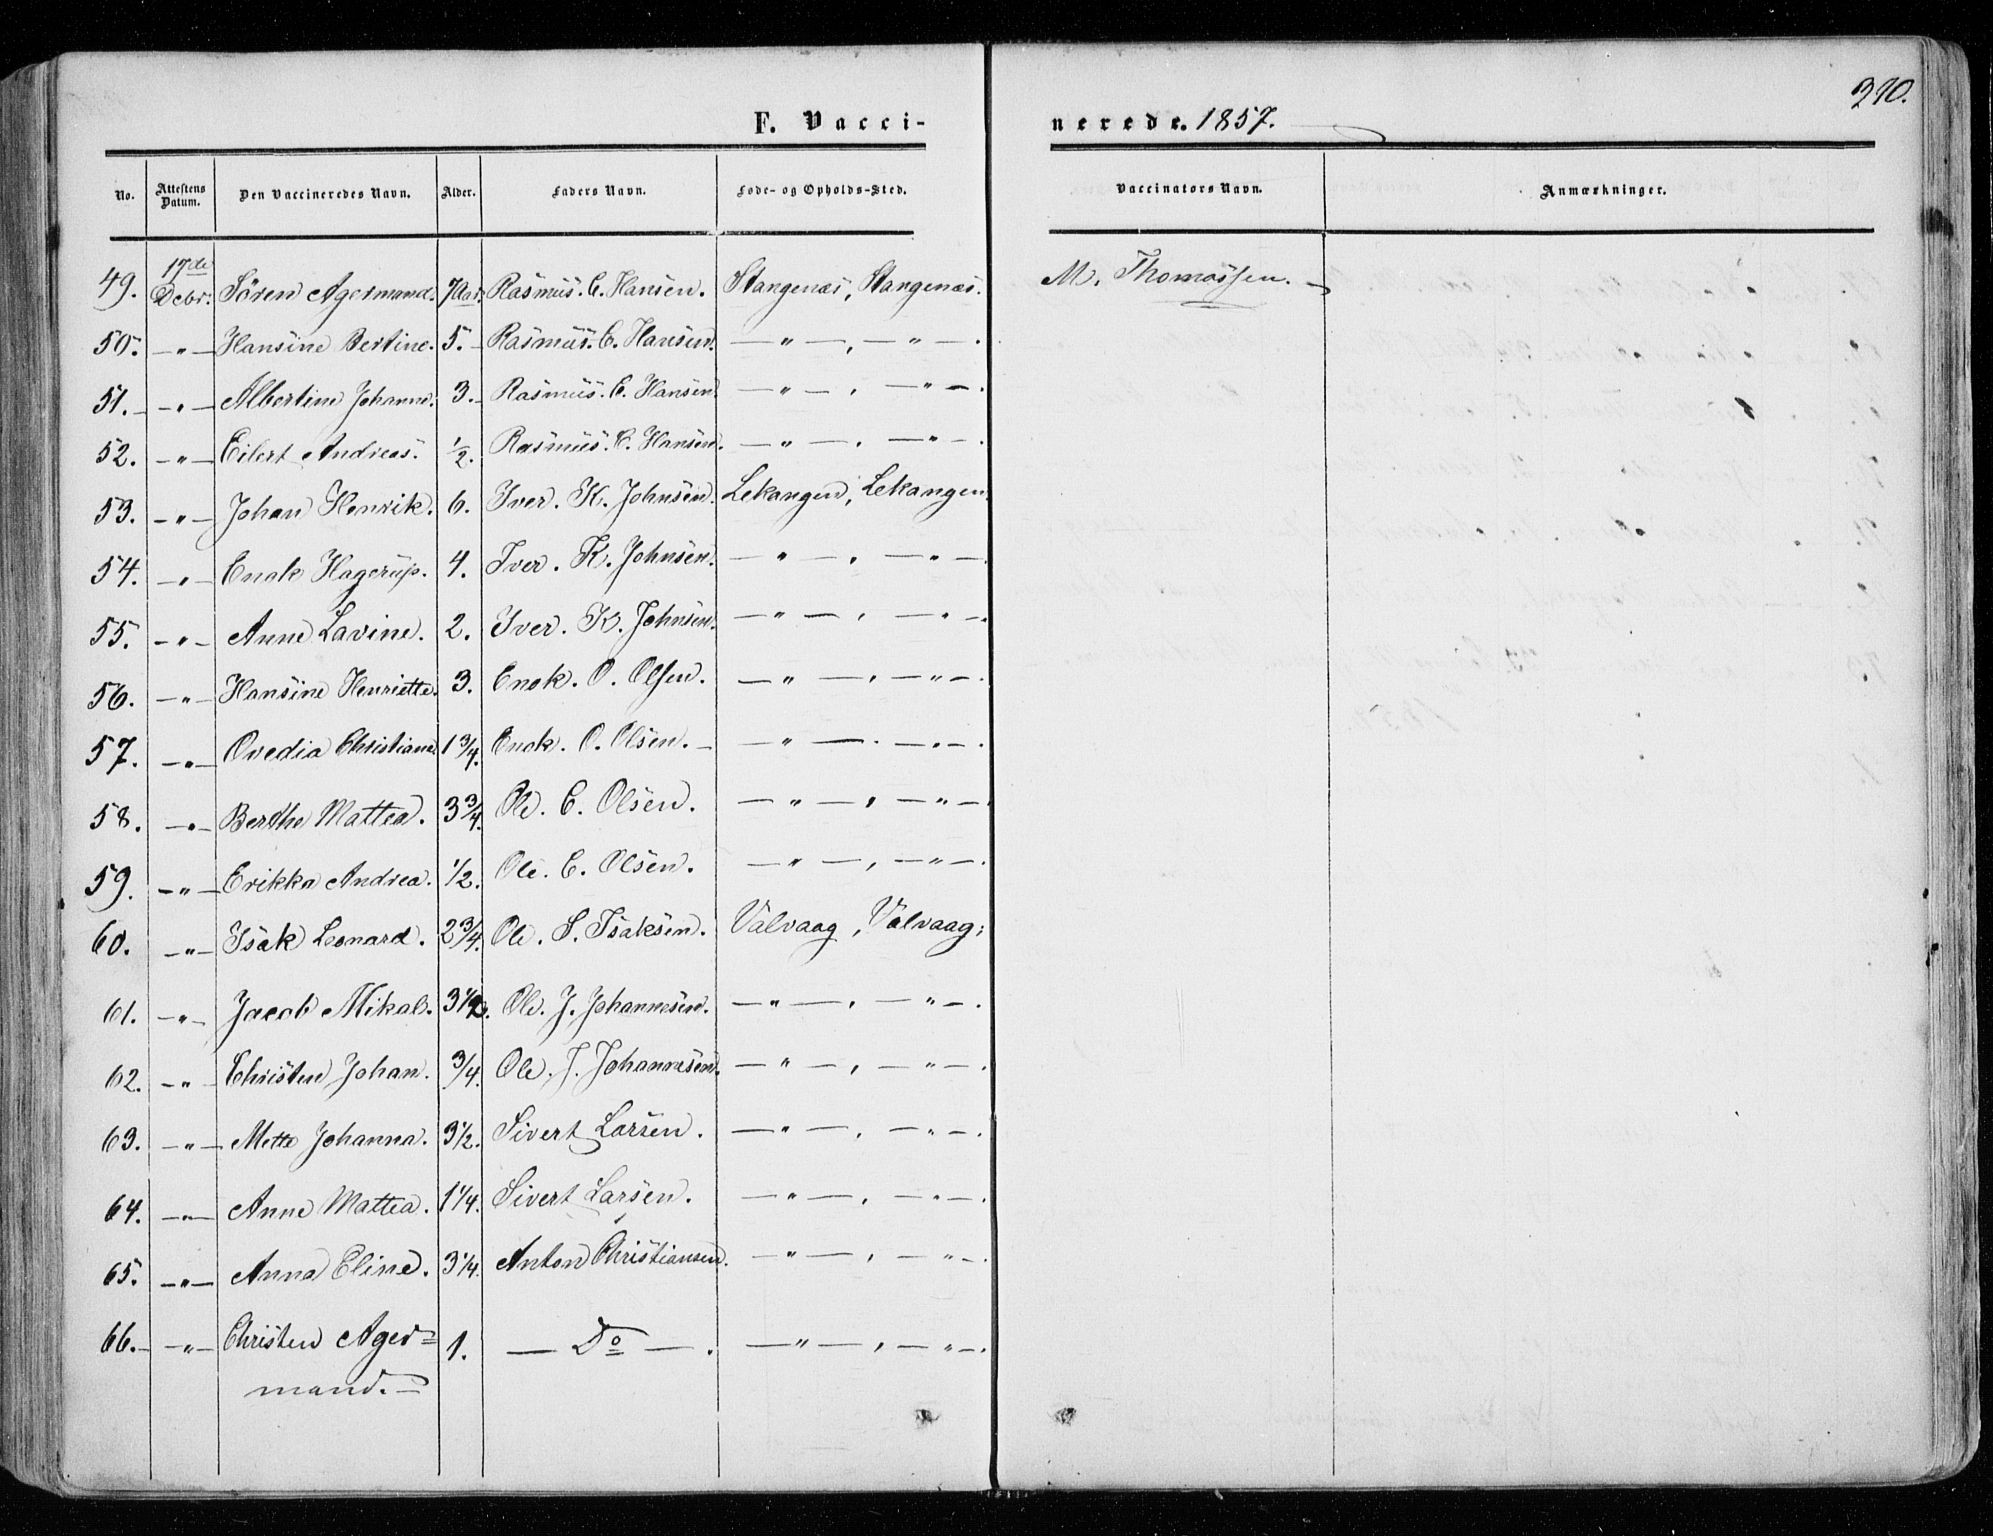 290.
F. Vacci-nerede. 1857.
No. Attestens Datum. Den Vaccineredes Navn. Alder. Faders Navn. Føde- og Opholds-Sted. Vaccinators Navn. Anmærkninger.
49. 17de Debr: Sören Agermand. 7 Aar. Rasmus. C. Hansen. Stangenæs, Stangenæs. M. Thomassen.
50. — " — Hansine Bertine. 5. Rasmus. C. Hansen. — " — , — " — .
51. — " — Albertine Johanne. 3. Rasmus. C. Hansen. — " — , — " — .
52. — " — Eilert Andreas. 1/2. Rasmus. C. Hansen. — " — , — " — .
53. — " — Johan Henrik. 6. Iver. K. Johnsen. Lekangen, Lekangen.
54. — " — Enok Hagerup. 4. Iver. K. Johnsen. — " — , — " —
55. — " — Anne Lavine. 2. Iver. K. Johnsen. — " — , — " — .
56. — " — Hansine Henriette. 3. Enok. O. Olsen. — " — , — " — .
57. — " — Ovedia Christiane 1 3/4. Enok. O. Olsen. — " — . — " — .
58. — " — Berthe Mattea. 3 3/4. Ole. C. Olsen. — " — , — " — .
59. — " — Erikka Andrea. 1/2. Ole. C. Olsen. — " — , — " — .
60. — " — Isak Leonard. 2 3/4. Ole. S. Isaksen. Valvaag, Valvaag;
61. — " — Jacob Mikal. 3 1/2. Ole. J. Johannesen. — " — , — " — .
62. — " — Christen Johan. 3/4. Ole. J. Johannesen. — " — , — " — .
63. — " — Mette Johanna. 3 1/2. Sivert Larsen. — " — , — " — .
64. — " — Anne Mattea. 1 1/4. Sivert Larsen. — " — , — " — .
65. — " — Anna Eline. 3 1/4. Anton Christiansen. — " — , — " — .
66. — " — Christen Ager= 1. — Do — . — " — , — " — .
mand.